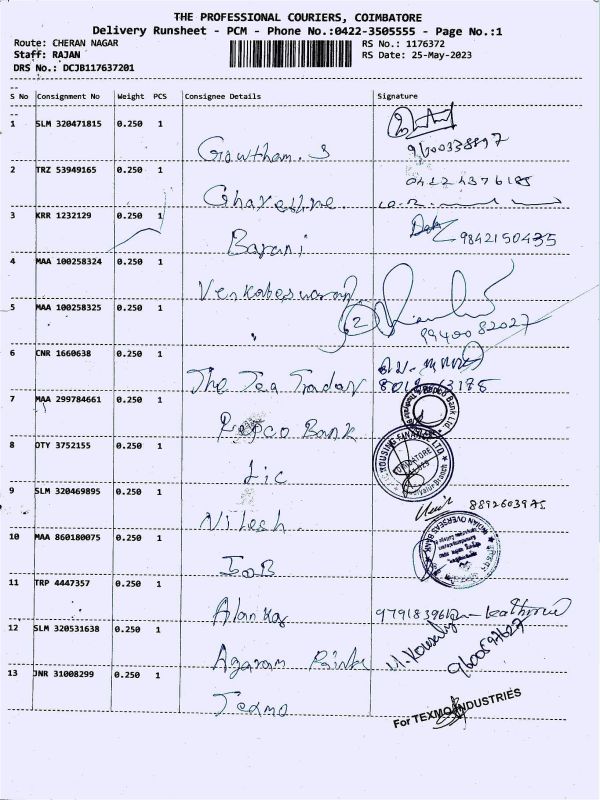 THE PROFESSIONAL COURIERS, COIMBATORE
Delivery Runsheet - PCM - Phone No.:0422-3505555 - Page No.:1
Route: CHERAN NAGAR RS No.: 1176372
Staff: RAJAN RS Date: 25-May-2023
DRS No.: DCJB117637201
S No Consignment No Weight PCS Consignee Details Signature
1 SLM 320471815 0.250 1
Gowtham. S 9600338897
2 TRZ 53949165 0.250 1
3 KRR 1232129 0.250 1
Barani 9842150435
4 MAA 100258324 0.250 1
Venkateswaran
5 MAA 100258325 0.250 1
2
9940082027
6 CNR 1660638 0.250 1
The Tea Trader
7 MAA 299784661 0.250 1
Repco Bank
Repco Bank Ltd.
8 OTY 3752155 0.250 1
Lic
HOUSING FINANCE LTD
9 SLM 320469895 0.250 1
Nilesh 8892603975
10 MAA 860180075 0.250 1
IOB
INDIAN OVERSEAS BANK
11 TRP 4447357 0.250 1
Alankar
12 SLM 320531638 0.250 1
Agaram Prints M. Kowsalya
9600597627
13 JNR 31008299 0.250 1
Texmo
For TEXMO INDUSTRIES